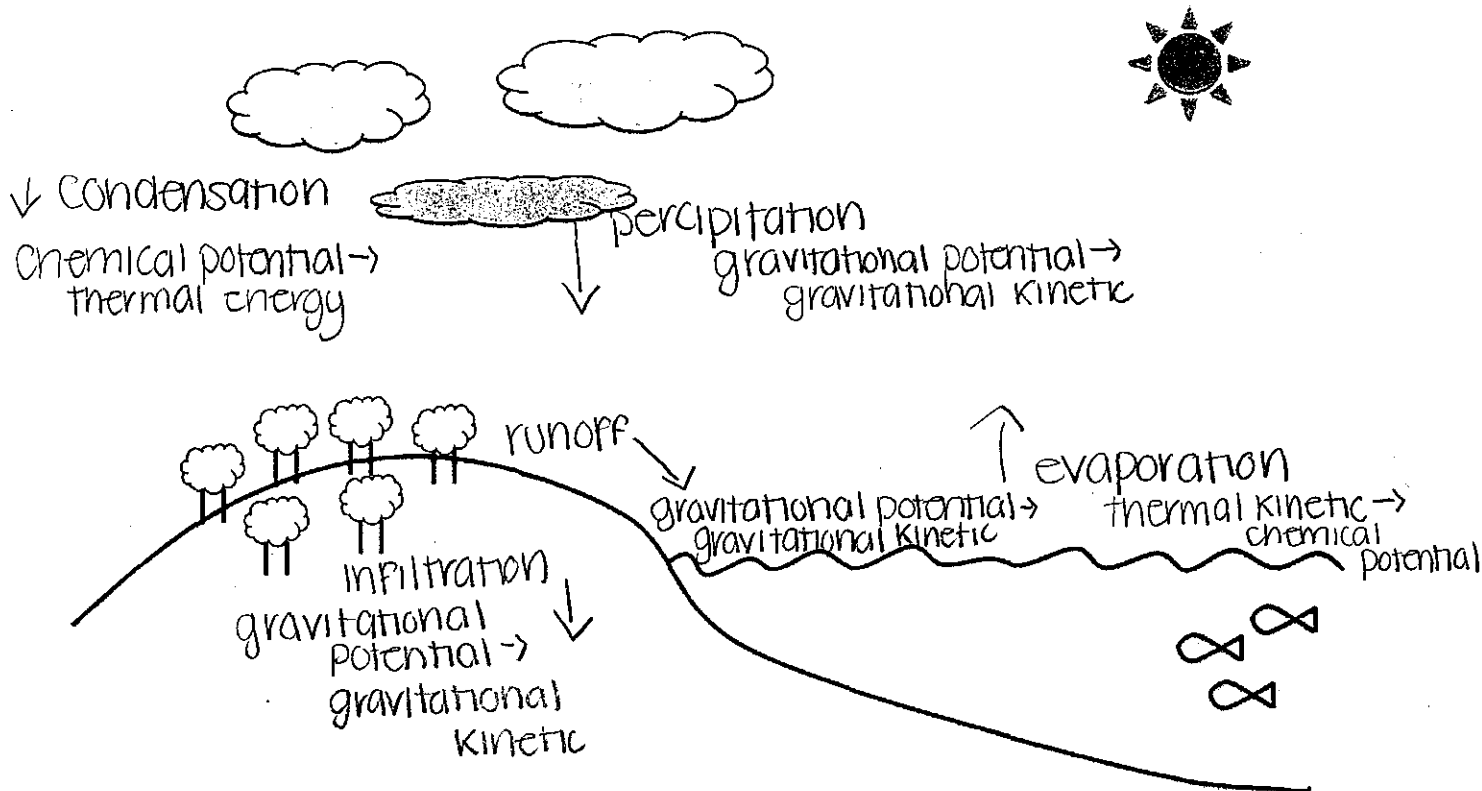 Condensation
Chemical potential →
thermal energy
percipitation
gravitational potential →
gravitational kinetic
runoff
gravitational potential →
gravitational kinetic
evaporation
thermal kinetic →
chemical
potential
infiltration
gravitational
potential →
gravitational
kinetic